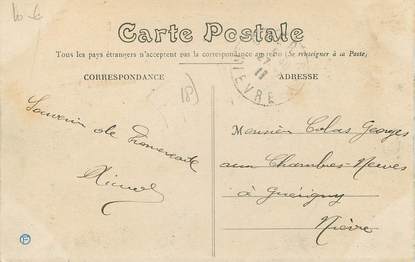 Carte Postale
Tous les pays étrangers n'acceptent pas la correspondance au recto (Se renseigner à la Poste)
CORRESPONDANCE
ADRESSE
NIEVRE
18)
Souvenir de Promenade
Monsieur Colas Georges
aux Chambres-Neuves
à Guérigny
Nièvre